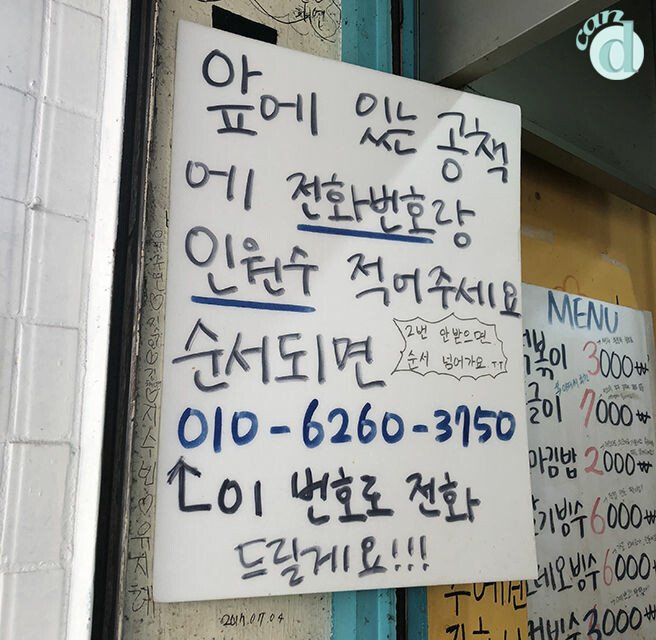 can d
앞에 있는 공책
에 전화번호랑
인원수 적어주세요
순서되면
2번 안받으면
순서 넘어가요 ㅜㅜ
010-6260-3750
이 번호로 전화
드릴게요!!!
2017.07.04
MENU
볶이 3000₩
7000₩
김밥 2000₩
빙수 6000₩
오빙수 6000₩
빙수 000₩